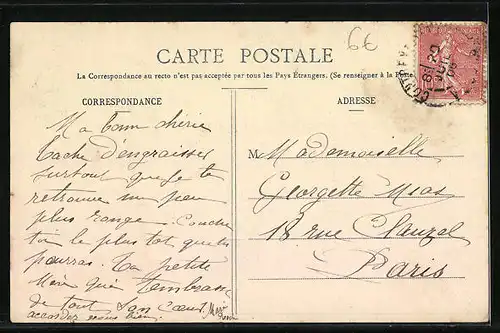 6€
CARTE POSTALE
La Correspondance au recto n'est pas acceptée par tous les Pays Étrangers. (Se renseigner à la Poste)
CORRESPONDANCE
ADRESSE
Ma bonne chérie
tache d'engraisser
surtout que je te
retrouve un peu
plus range. Couche
toi le plus tot que tu
pourras. Ta petite
Mère qui t'embrasse
de tout son cœur.
accordez vous bien.
M Mademoiselle
Georgette Mias
18 rue Clauzel
Paris